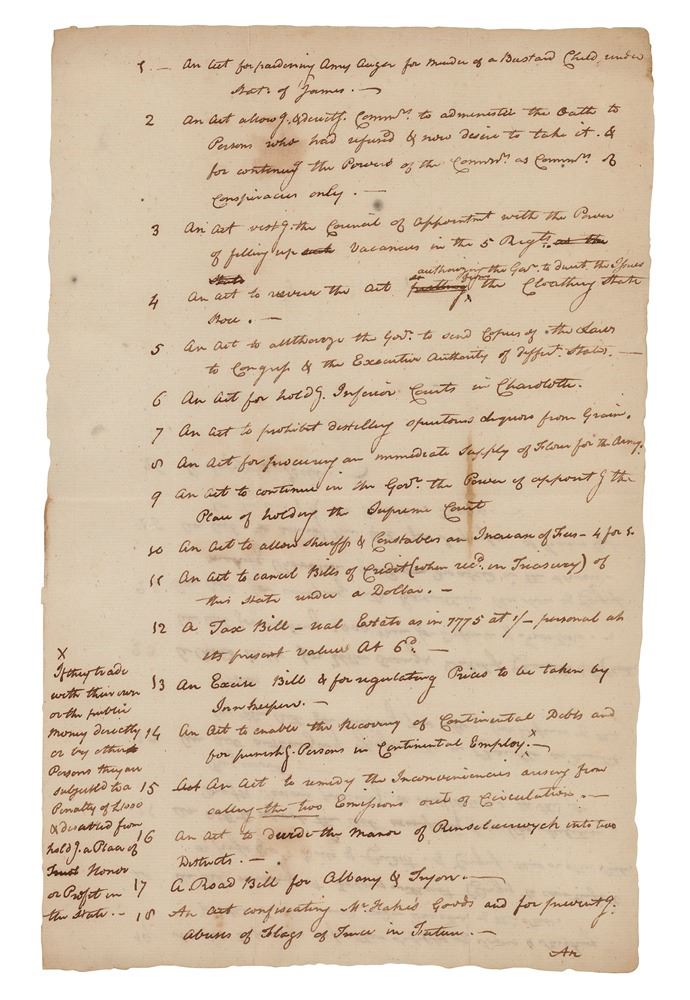 1. — An Act for pardoning Amy Auger for Murder of a Bastard Child, under
Stat: of James. —
2 An Act allowg. & directg. Commrs. to administer the Oath to
Persons who had refused & now desire to take it. &
for continuing the Powers of the Commrs. as Commrs. of
Conspiracies only. —
3 An Act vestg. the Council of Appointment with the Power
of filling up such Vacancies in the 5 Regts. as the
State
authorizing the Govr. to direct the Issues
from
4 An Act to revive the Act the Cloathing State
Store. —
5 An Act to authorize the Govr. to send Copies of the Laws
to Congress & the Executive Authority of differt. States. —
6 An Act for holdg. Inferior Courts in Charlotte.
7 An Act to prohibit distilling spirituous Liquors from Grain.
8 An Act for procuring an immediate Supply of Flour for the Army.
9 An Act to continue in the Govr. the Power of appointg the
Place of holding the Supreme Court
10 An Act to allow Sheriffs & Constables an Increase of Fees – 4 for 1.
11 An Act to cancel Bills of Credit (when recd. in Treasury) of
this State under a Dollar. —
12 A Tax Bill – real Estate as in 1775 at 1/– personal at
its present value at 6d. —
13 An Excise Bill & for regulating Prices to be taken by
Inn keepers. —
14 An Act to enable the Recovery of Continental Debts and
for punishg. Persons in Continental Employ. x —
15 Act An Act to remedy the Inconveniencies arising from
calling the two Emissions out of Circulation. —
16 An Act to divide the Manor of Renselaerwyck into two
Districts. —
17 A Road Bill for Albany & Tryon. —
18 An Act confiscating Mr. Hake's Goods and for preventg.
Abuses of Flags of Truce in Future. —
An
x
If they trade
with their own
or the public
Money directly
or by others
Persons they are
subjected to a
Penalty of
& disabled from
holdg. a Place of
Trust Honor
or Profit in
the State. —